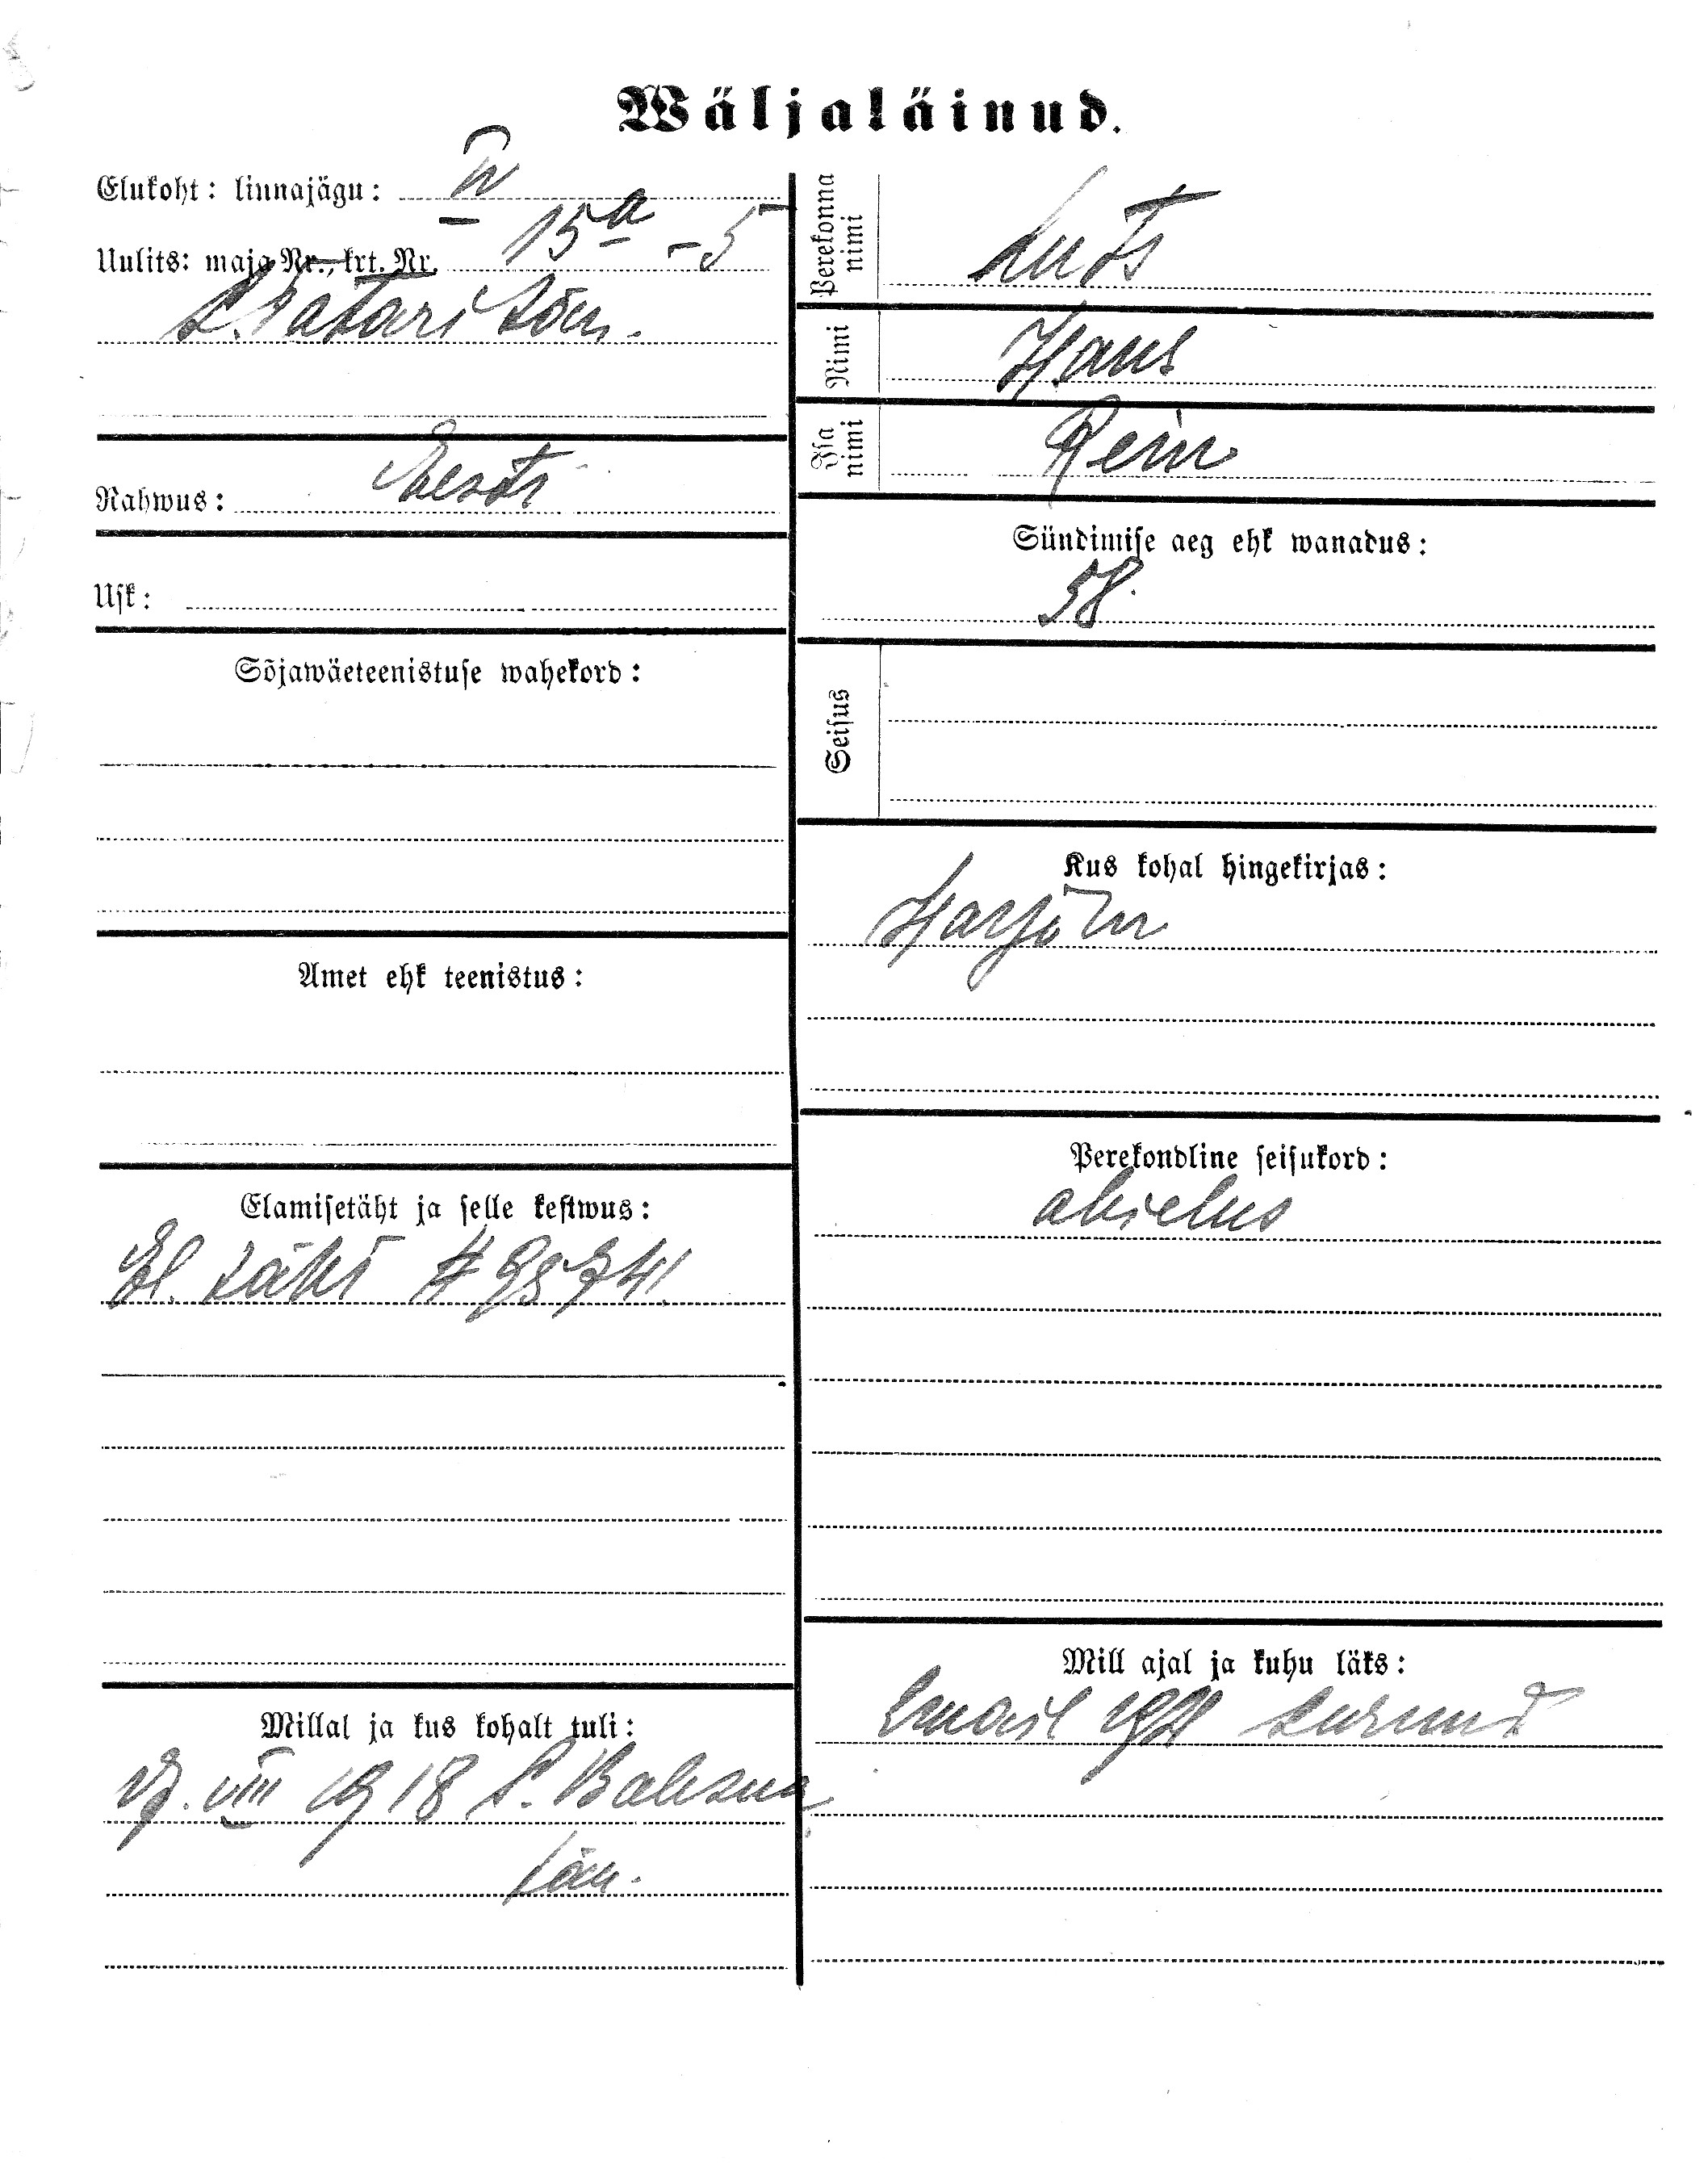 Wäljaläinud.
Elukoht: linnajägu: IV
Uulits: maja Nr., krt. Nr. 15a - 5
L. Tatari tän.
Rahwus: Eesti
Usk:
Sõjawäeteenistuse wahekord:
Amet ehk teenistus:
Elamisetäht ja selle kestwus:
El. täht #
Millal ja kus kohalt tuli:
VIII 1918 L.
tän.
Perekonna nimi Luts
Nimi Hans
Isa nimi Rein
Sündimise aeg ehk wanadus:
58.
Seisus
Kus kohal hingekirjas:
Perekondline seisukord:
abielus
Mill ajal ja kuhu läks:
surnud